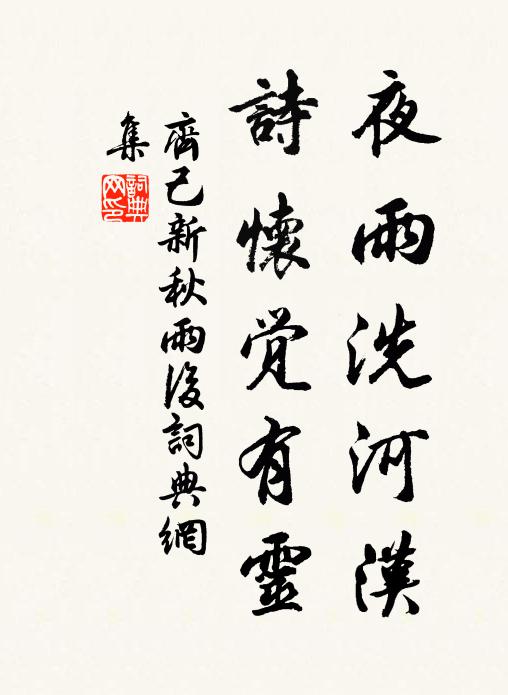 夜雨洗河漢
詩懷覚有靈
齊己新秋雨後詞典網
集
詞典网印